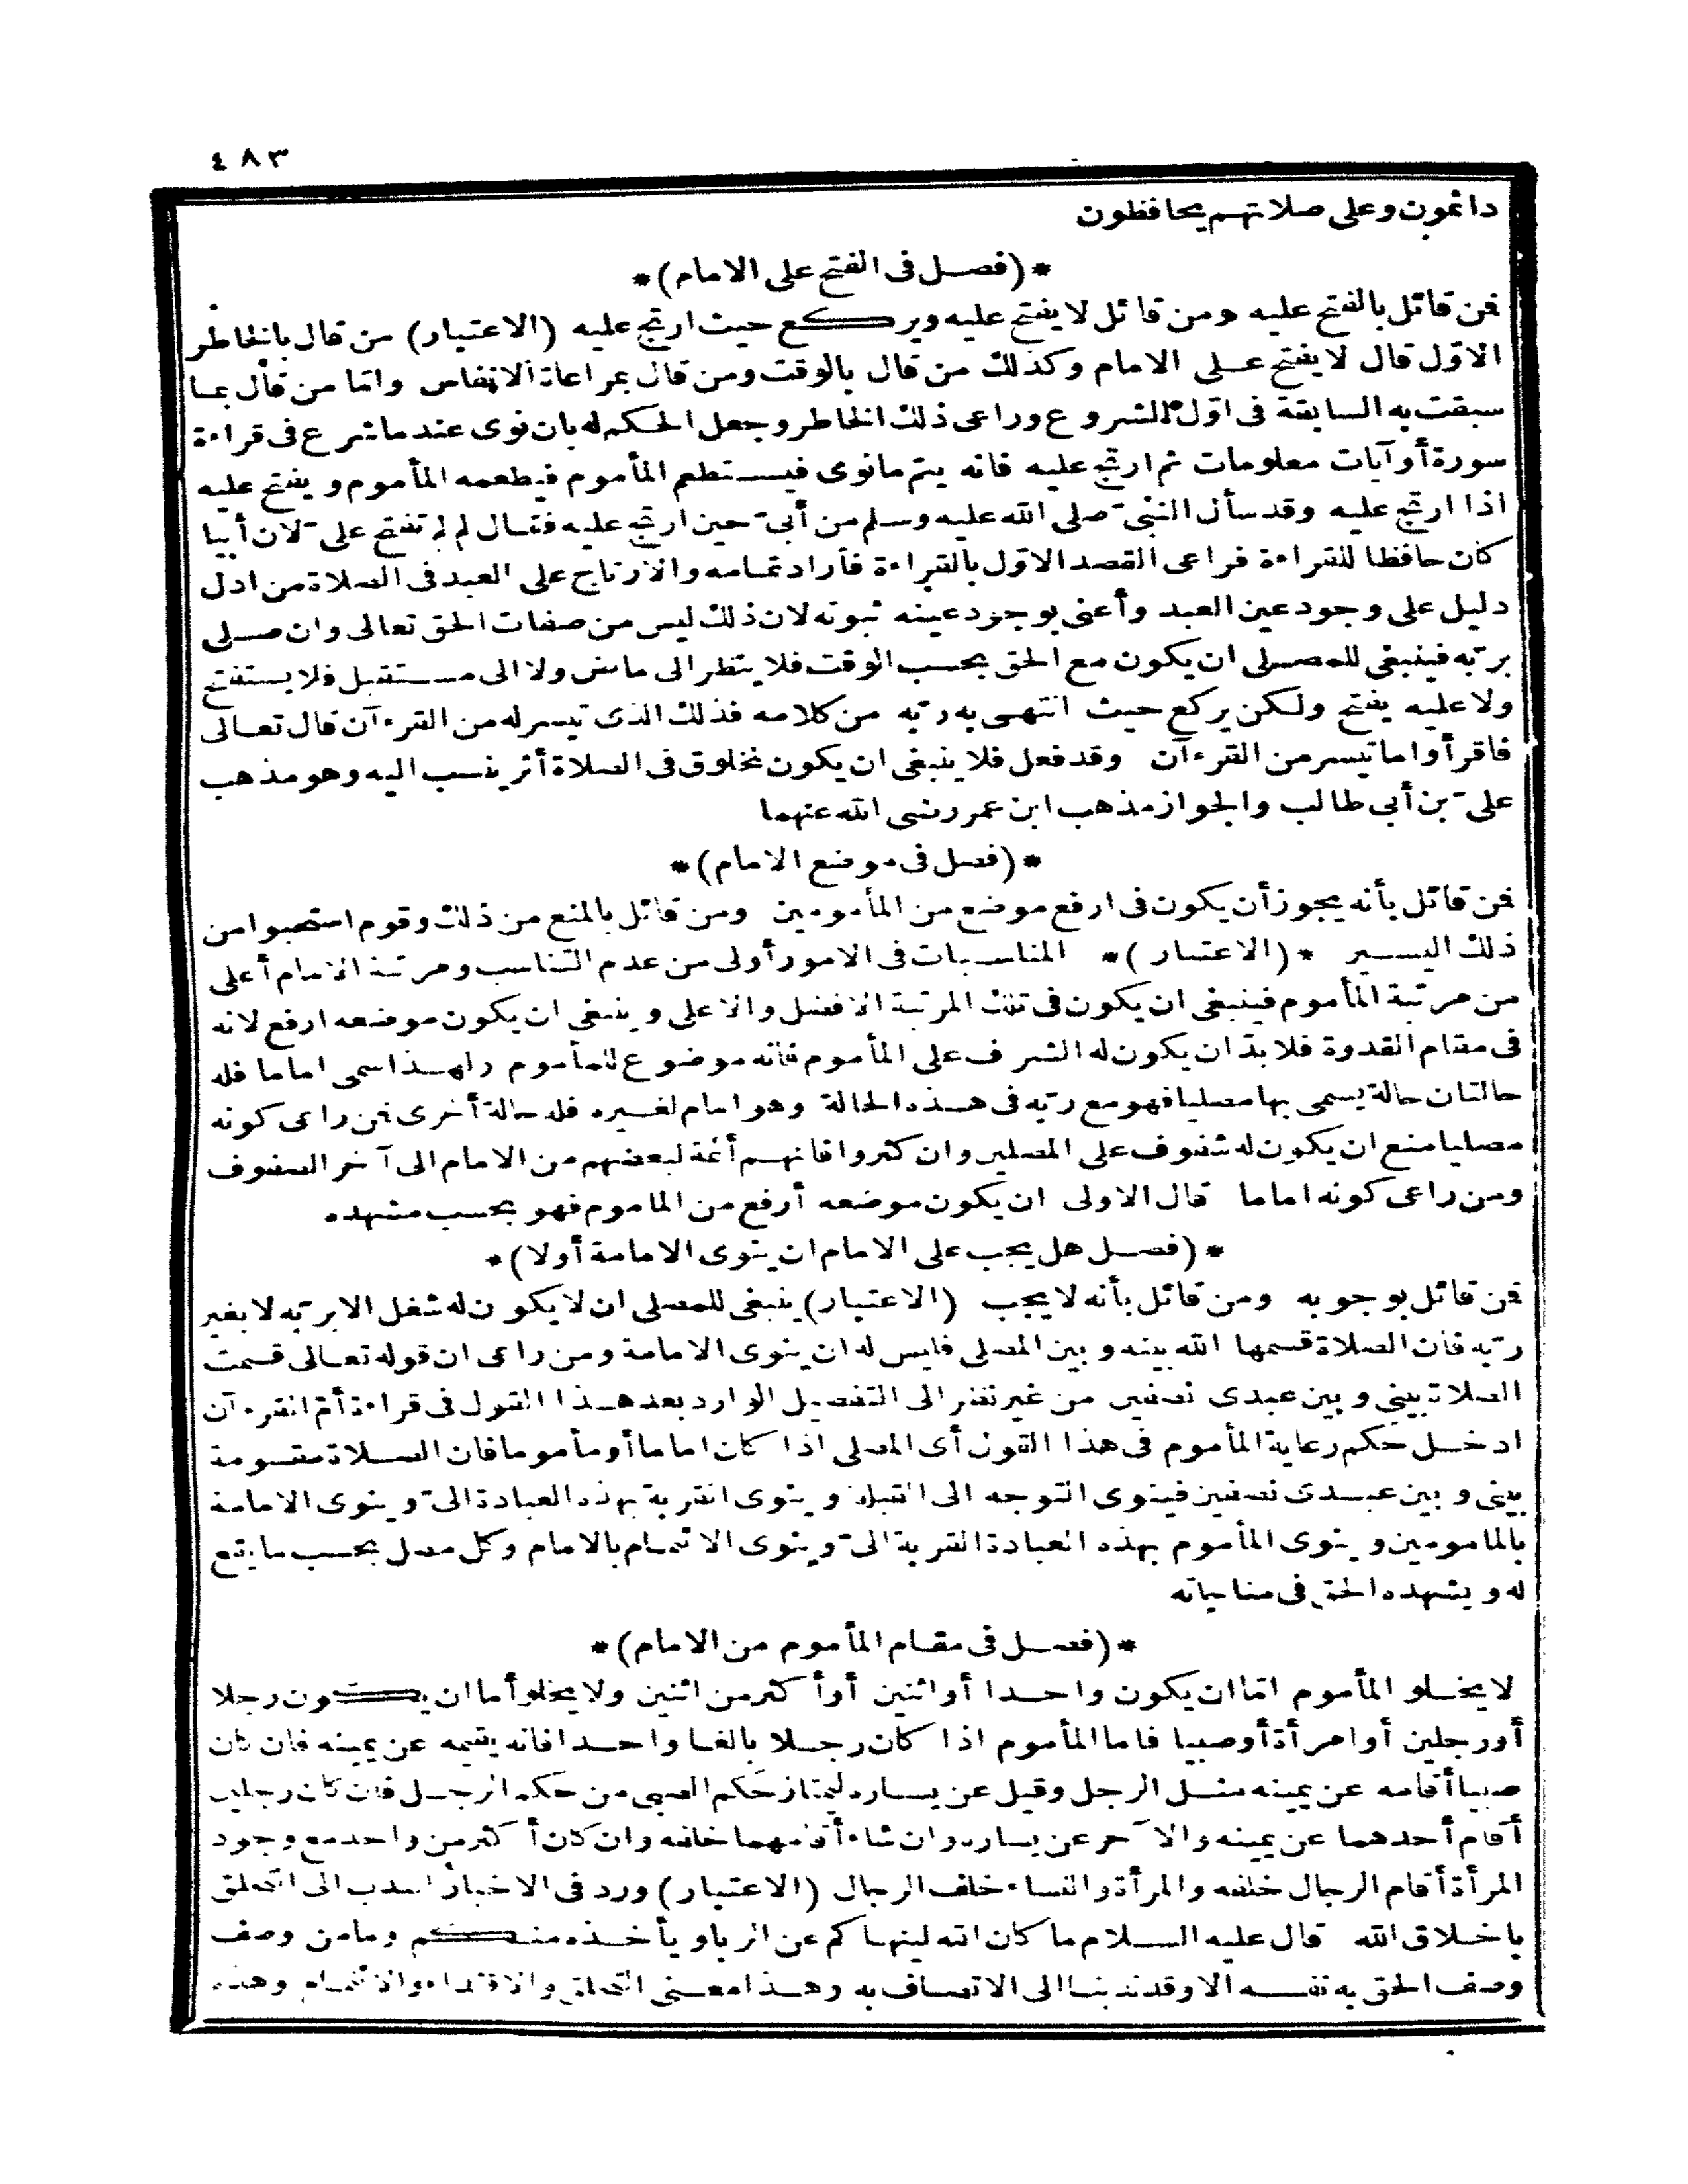 ٤٨٣
دائمون وعلى صلاتهم يحافظون
*(فصل فى الفتح على الامام)*
فمن قائل بالفتح عليه ومن قائل لا يفتح عليه ويركع حيث ارتج عليه (الاعتبار) من قال بالخاطر
الاوّل قال لا يفتح على الامام وكذلك من قال بالوقت ومن قال بمراعاة الانفاس وامّا من قال بما
سبقت به السابقة فى اوّل الشروع وراعى ذلك الخاطر وجعل الحكم له بان نوى عند ما شرع فى قراءة
سورة أو آيات معلومات ثم ارتج عليه فانه يتم ما نوى فيستطعم المأموم فيطعمه المأموم ويفتح عليه
اذا ارتج عليه وقد سأل النبىّ صلى الله عليه وسلم من أبىّ حين ارتج عليه فقال لم لم تفتح علىّ لان أبيا
كان حافظا للقراءة فراعى القصد الاوّل بالقراءة فأراد تمامه والارتاج على العبد فى الصلاة من ادل
دليل على وجود عين العبد وأعنى بوجود عينه ثبوته لان ذلك ليس من صفات الحق تعالى وان صلى
بربّه فينبغى للمصلى ان يكون مع الحق بحسب الوقت فلا ينظر الى ماض ولا الى مستقبل فلا يستفتح
ولا عليه يفتح ولكن يركع حيث انتهى به ربّه من كلامه فذلك الذى تيسر له من القرءآن قال تعالى
فاقرأوا ما تيسر من القرءآن وقد فعل فلا ينبغى ان يكون لمخلوق فى الصلاة أثر ينسب اليه وهو مذهب
علىّ بن أبى طالب والجواز مذهب ابن عمر رضى الله عنهما
*(فصل فى موضع الامام)*
فمن قائل بأنه يجوز أن يكون فى ارفع موضع من المأمومين ومن قائل بالمنع من ذلك وقوم استحبوا من
ذلك اليسير *(الاعتبار)* المناسبات فى الامور أولى من عدم التناسب ومرتبة الامام أعلى
من مرتبة المأموم فينبغى ان يكون فى تلك المرتبة الافضل والاعلى وينبغى ان يكون موضعه ارفع لانه
فى مقام القدوة فلا بدّ ان يكون له الشرف على المأموم فانه موضوع للمأموم ولهذا سمى اماما فله
حالتان حالة يسمى بها مصليا فهو مع ربّه فى هذه الحالة وهو امام لغيره فله حالة أخرى فمن راعى كونه
مصليا منع ان يكون له شفوف على المصلين وان كثروا فانهم أئمة لبعضهم من الامام الى آخر الصفوف
ومن راعى كونه اماما قال الاولى ان يكون موضعه أرفع من الماموم فهو بحسب مشهده
*(فصل هل يجب على الامام ان ينوى الامامة أولا)*
فمن قائل بوجوبه ومن قائل بأنه لا يجب (الاعتبار) ينبغى للمصلى ان لا يكون له شغل الا بربّه لا بغير
ربّه فان الصلاة قسمها الله بينه وبين المصلى فليس له ان ينوى الامامة ومن راعى ان قوله تعالى قسمت
الصلاة بينى وبين عبدى نصفين من غير نظر الى التفصيل الوارد بعد هذا القول فى قراءة أمّ القرءآن
ادخل حكم رعاية المأموم فى هذا القول أى المصلى اذا كان اماما أو مأموما فان الصلاة مقسومة
بينى وبين عبدى نصفين فينوى التوجه الى القبلة وينوى القربة بهذه العبادة الىّ وينوى الامامة
بالمامومين وينوى المأموم بهذه العبادة القربة الىّ وينوى الائتمام بالامام وكل مصل بحسب ما يقع
له ويشهده الحق فى مناجاته
*(فصل فى مقام المأموم من الامام)*
لا يخلو المأموم امّا ان يكون واحدا أو اثنين أو أكثر من اثنين ولا يخلو أما ان يكون رجلا
أو رجلين أو امرأة أو صبيا فاما المأموم اذا كان رجلا بالغا واحدا فانه يقيمه عن يمينه فان كان
صبيا أقامه عن يمينه مثل الرجل وقيل عن يساره ليمتاز حكم الصبى من حكم الرجل فان كان رجلين
أقام أحدهما عن يمينه والآخر عن يساره وان شاء أقامهما خلفه وان كان أكثر من واحد مع وجود
المرأة أقام الرجال خلفه والمرأة والنساء خلف الرجال (الاعتبار) ورد فى الاخبار الندب الى التخلق
باخلاق الله قال عليه السلام ما كان الله لينهاكم عن الربا ويأخذه منكم وما من وصف
وصف الحق به نفسه الا وقد ندبنا الى الاتصاف به وهذا معنى التخلق والاقتداء والائتمام وهذه